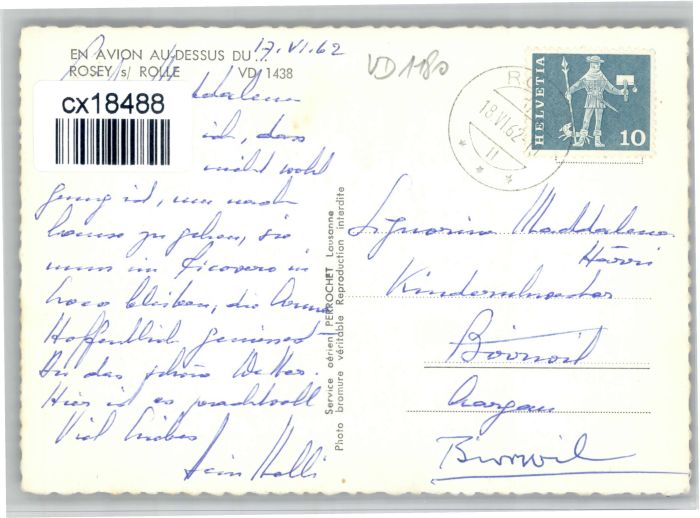 EN AVION AU-DESSUS DU...
ROSEY s/ ROLLE VD 1438
17.VI.62
VD 1180
cx18488
ich, dass
nicht wohl
genug ist, um nach
hause zu gehen, sie
muss im Ricovero in
Loco bleiben, die Arme
Hoffentlich geniesst
Du das schöne Wetter.
Hier ist es prachtvoll
Viel Liebes
Service aérien PERROCHET Lausanne
Photo bromure véritable Reproduction interdite
18.VI.62
HELVETIA
10
Signorina Maddalena
Kinderschwester
Aargau